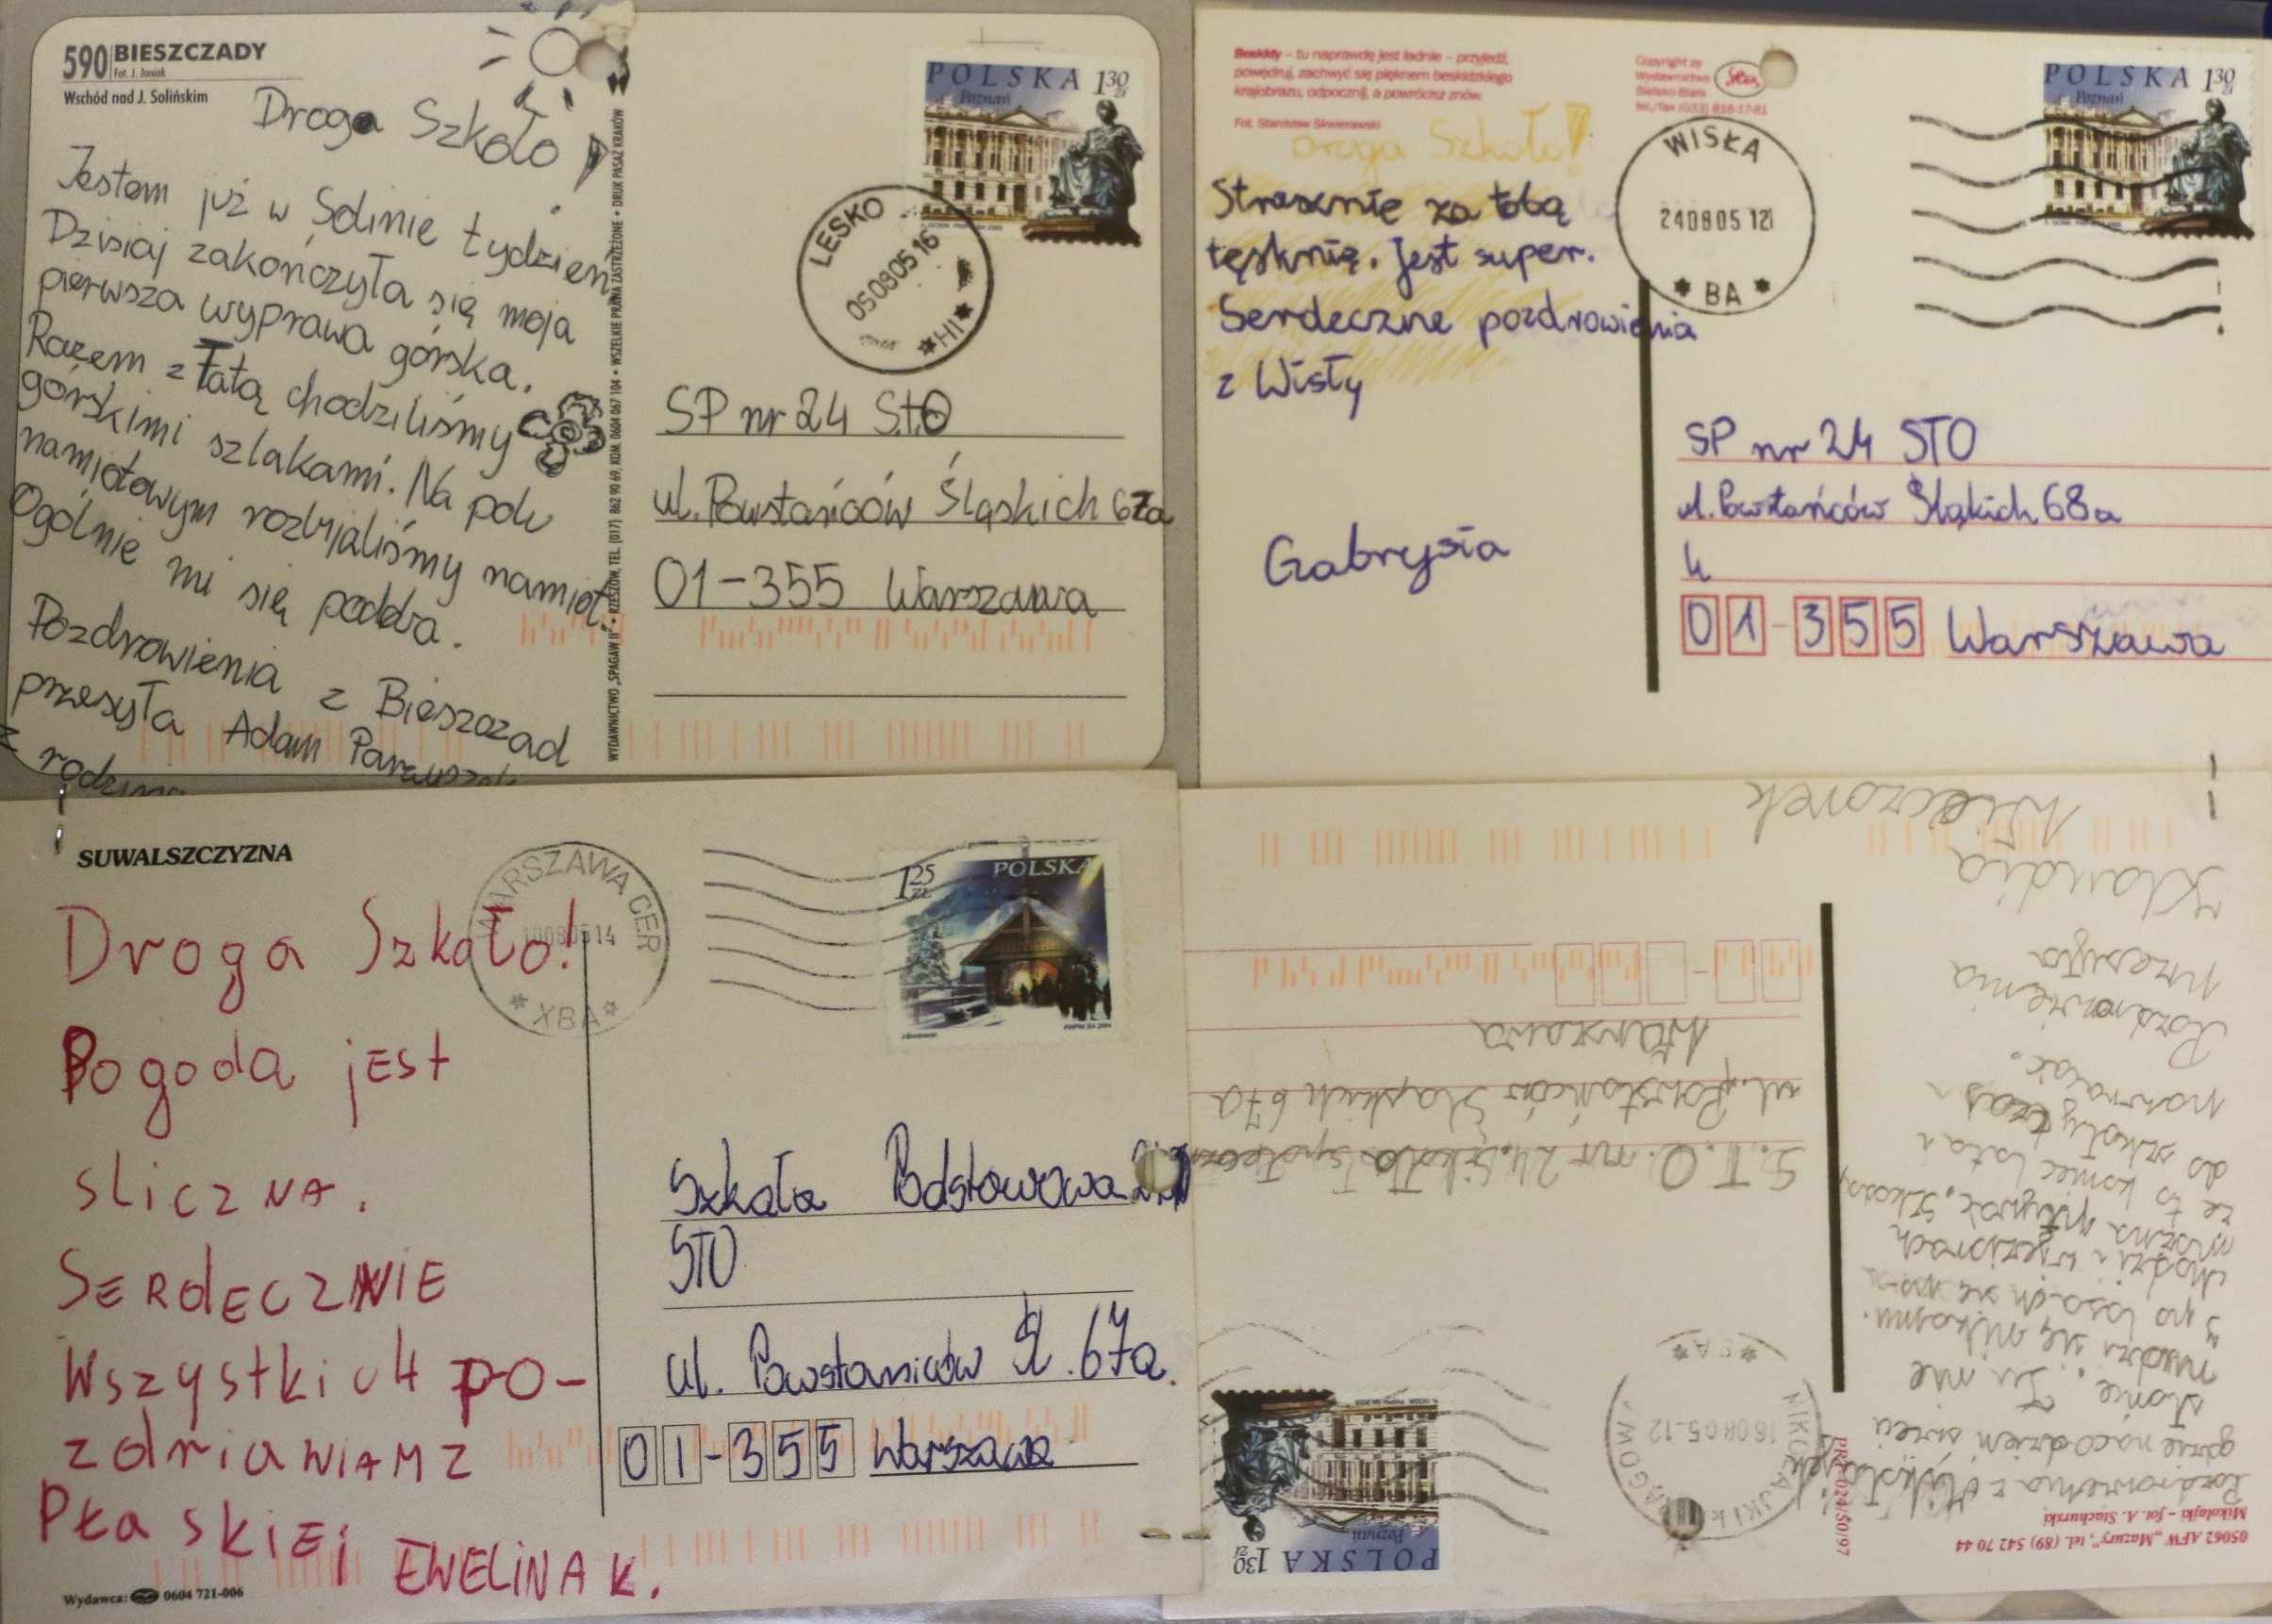 590 BIESZCZADY
Fot. J. Joniak
Wschód nad J. Solińskim
Droga Szkoło!
Jestem już w Solinie tydzień.
Dzisiaj zakończyła się moja
pierwsza wyprawa górska.
Razem z Tatą chodziliśmy
górskimi szlakami. Na polu
namiotowym rozbijaliśmy namiot.
Ogólnie mi się podoba.
Pozdrowienia z Bieszczad
przesyła Adam
z rodziną
WYDAWNICTWO „SPAGAW II" • RZESZÓW, TEL. (017) 862 90 69, KOM. 0604 067 104 • WSZELKIE PRAWA ZASTRZEŻONE • DRUK PASAŻ KRAKÓW
POLSKA 1 30 zł
Poznań
LESKO
05080516
* HI *
SP nr 24 STO
ul. Powstańców Śląskich 67a
01-355 Warszawa
Beskidy – tu naprawdę jest ładnie – przyjedź,
powędruj, zachwyć się pięknem beskidzkiego
krajobrazu, odpocznij, a powrócisz znów.
Fot. Stanisław Skwierawski
Copyright by
Wydawnictwo
Bielsko-Biała
tel./fax (033) 816-17-81
Droga Szkoło!
Strasznie za tobą
tęsknię. Jest super.
Serdeczne pozdrowienia
z Wisły
Gabrysia
WISŁA
240805 12
* BA *
POLSKA 1 30 zł
Poznań
SP nr 24 STO
ul. Powstańców Śląkich 68a
01-355 Warszawa
SUWALSZCZYZNA
Droga Szkoło!
Pogoda jest
śliczna.
SERdECZNIE
Wszystkich po-
zdriawiam z
Płaskiej EWELINA K.
Wydawca: 0604 721-006
WARSZAWA CER
100805 14
* XBA *
1 25 ZŁ POLSKA
Szkoła Podstawowa
STO
ul. Powstańców Śl. 67a
01-355 Warszawa
05062 AFW „Mazury", tel. (89) 542 70 44
Mikołajki – fot. A. Stachurski
Pozdrowienia z Mikołajek
gdzie na co dzień świeci
słońce. Tu nie
nudzi się nikomu
po lasach się
chodzi i w jeziorach
można pływać. Szkoda
że to koniec lata i
do szkoły czas
wracać.
Pozdrowienia
przesyła
Klaudia
Wieczorek
PRT-024/50/97
160805-12
POLSKA 1 30 zł
Poznań
S.T.O. nr 24. Szkoła
ul. Powstańców Śląskich 67a
Warszawa